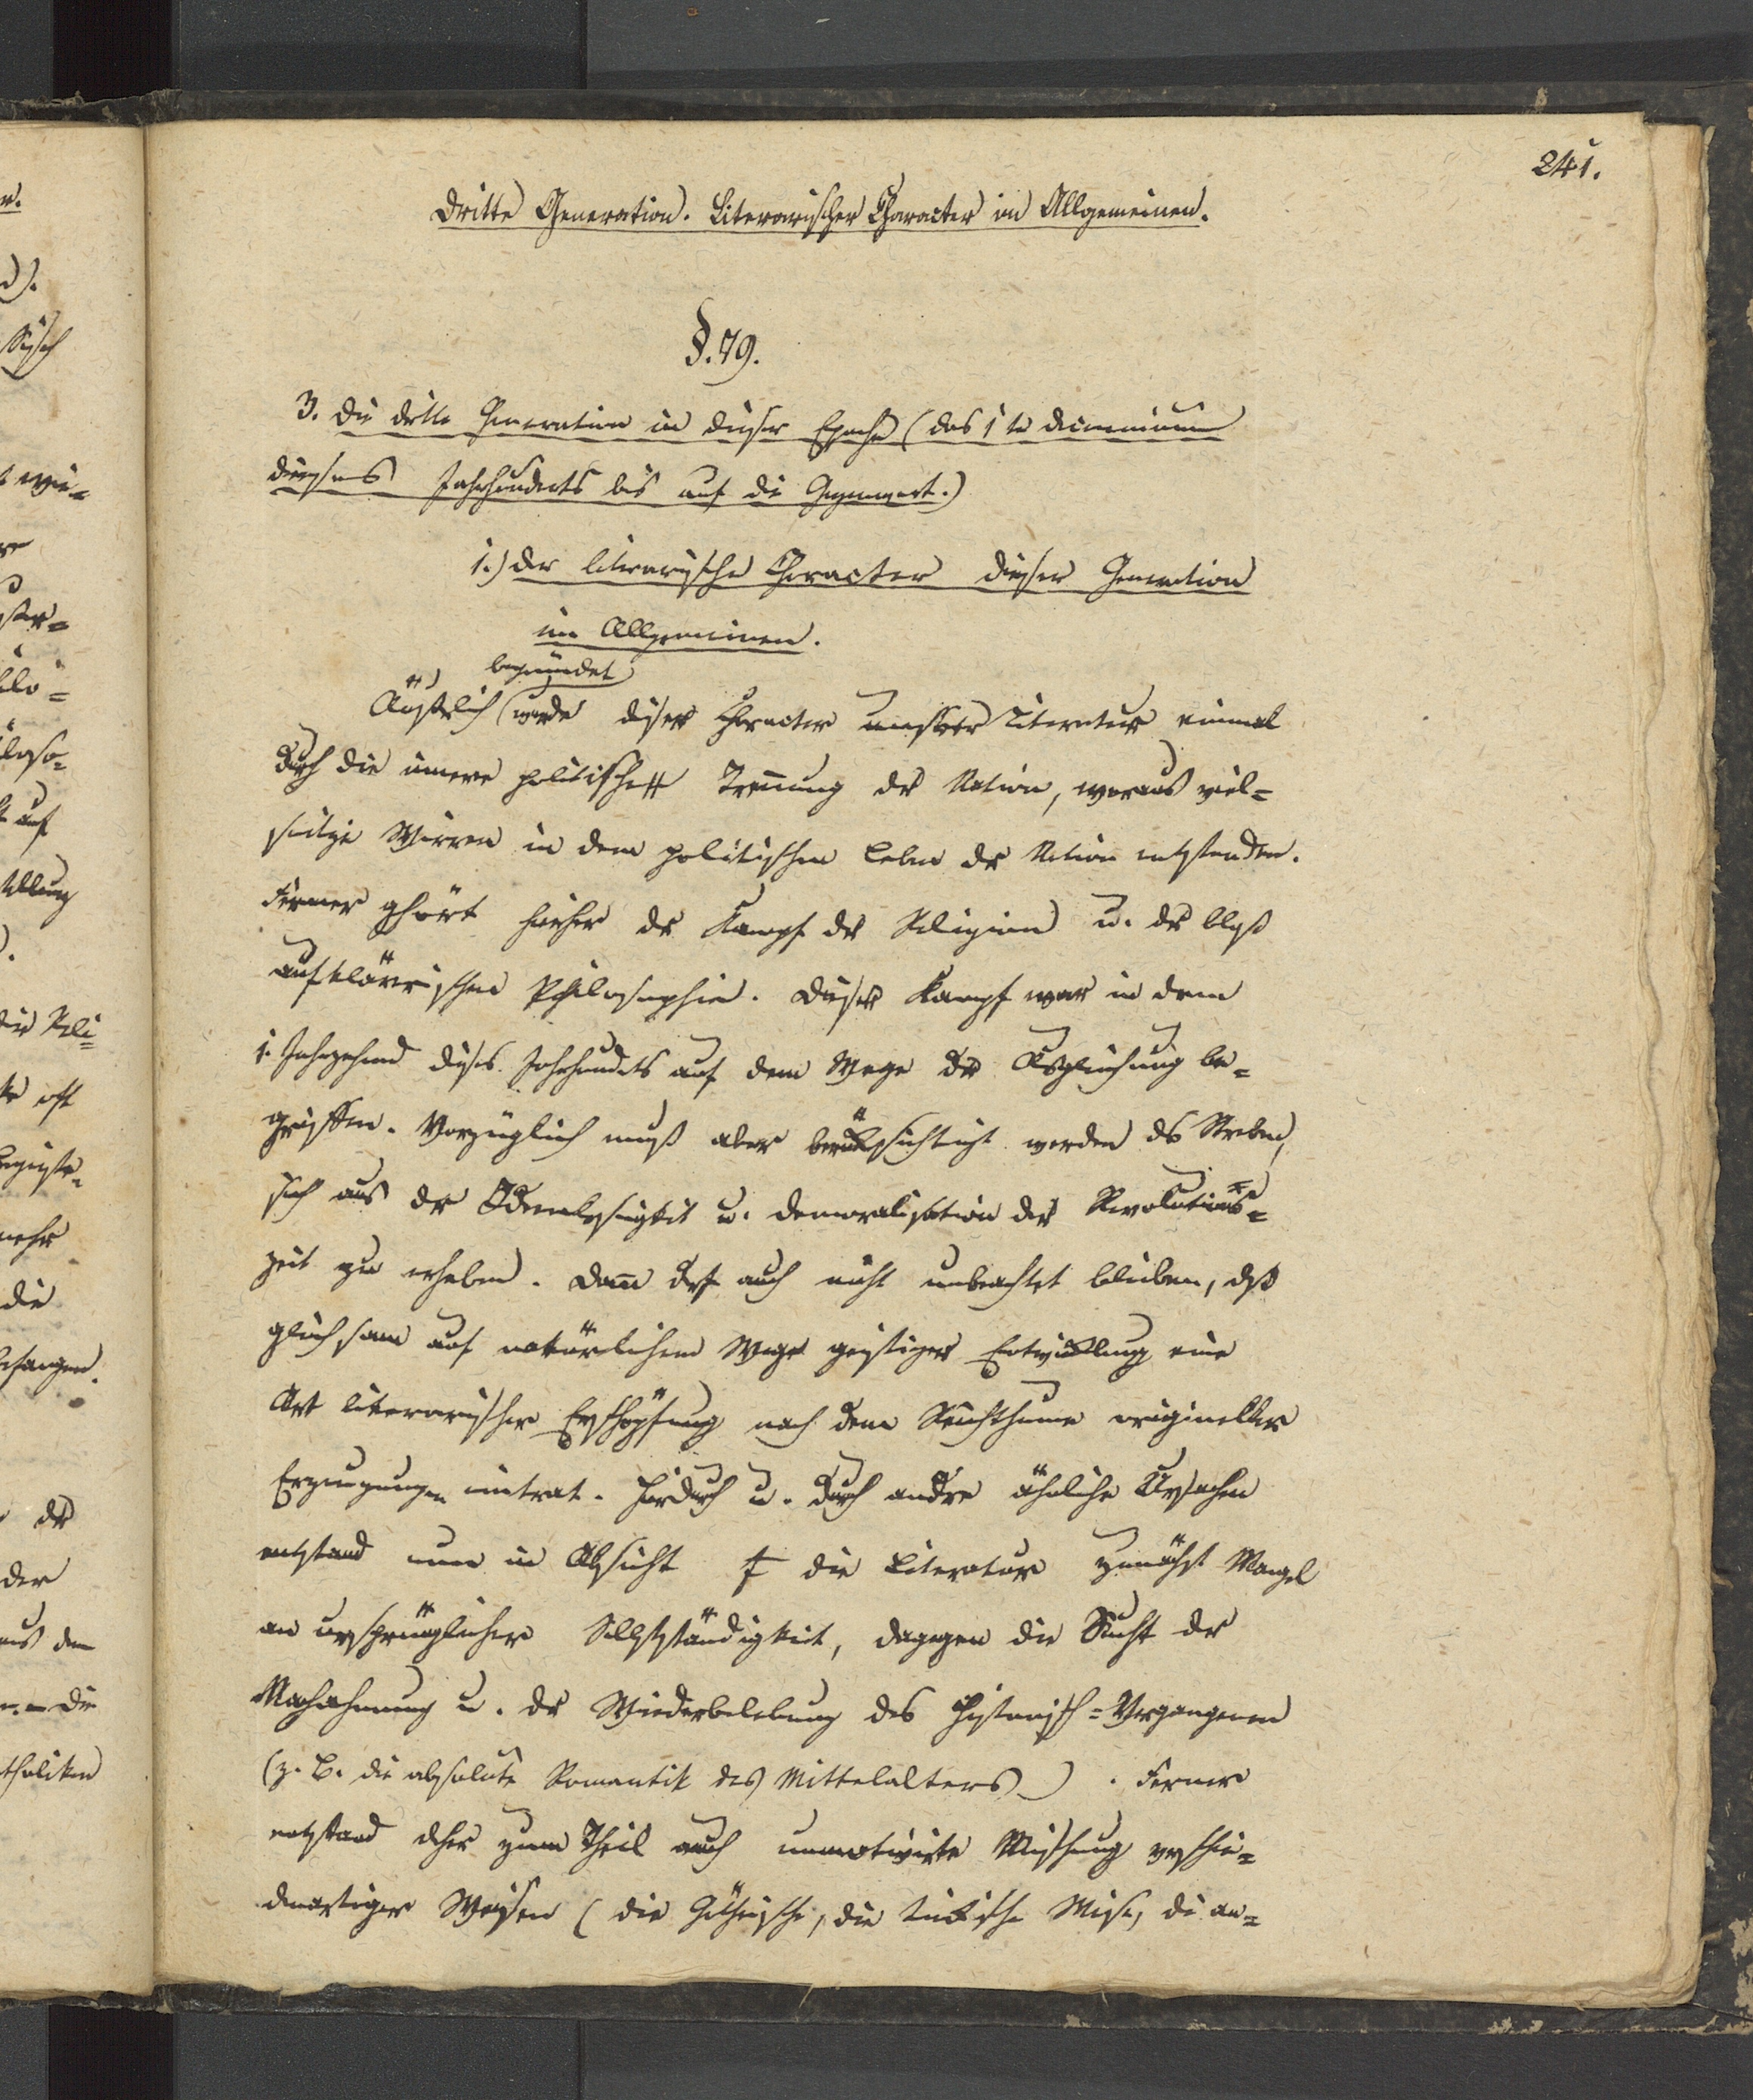 241.
Dritte Generation. Literarischer Character im Allgemeinen.
§. 79.
3. Die dritte Generation in dieser Epoche (das 1te Decennium
dieses Jahrhunderts bis auf die Gegenwart.)
1.) Der literarische Character dieser Generation
im Allgemeinen.
begründet
Äußerlich wurde dieser Character unserer Literatur einmal
durch die innere politische Trennung der Nation, woraus viel=
seitige Wirren in dem politischen Leben der Nation entstanden.
Ferner gehört hierher der Kampf der Religion u. der bloß
aufklärerischen Philosophie. Dieser Kampf war in dem
1. Jahrzehend dieses Jahrhunderts auf dem Wege der Ausgleichung be=
griffen. Vorzüglich muß aber berücksichtigt werden das Streben,
sich aus der Ideenlosigkeit u. Demoralisation der Revolutions=
zeit zu erheben. Dann darf auch nicht unbeachtet bleiben, daß
gleichsam auf natürlichem Wege geistiger Entwicklung eine
Art literarischer Erschöpfung nach dem Reichthume origineller
Erzeugungen eintrat. Hierdurch u. durch andre ähnliche Ursachen
entstand nun in Absicht auf die Literatur zunächst Mangel
an ursprünglicher Selbstständigkeit, dagegen die Sucht der
Nachahmung u. der Wiederbelebung des Historisch=Vergangenen
(z. B. die absolute Romantik des Mittelalters). Ferner
entstand daher zum Theil auch unmotivirte Mischung verschie=
denartiger Weisen (die Göthische, die Tiekische Weise, die an=